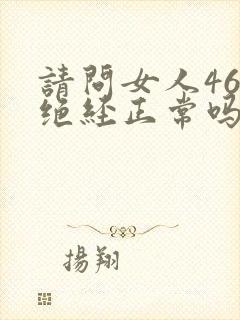 請問女人46
绝经正常吗
揚翔